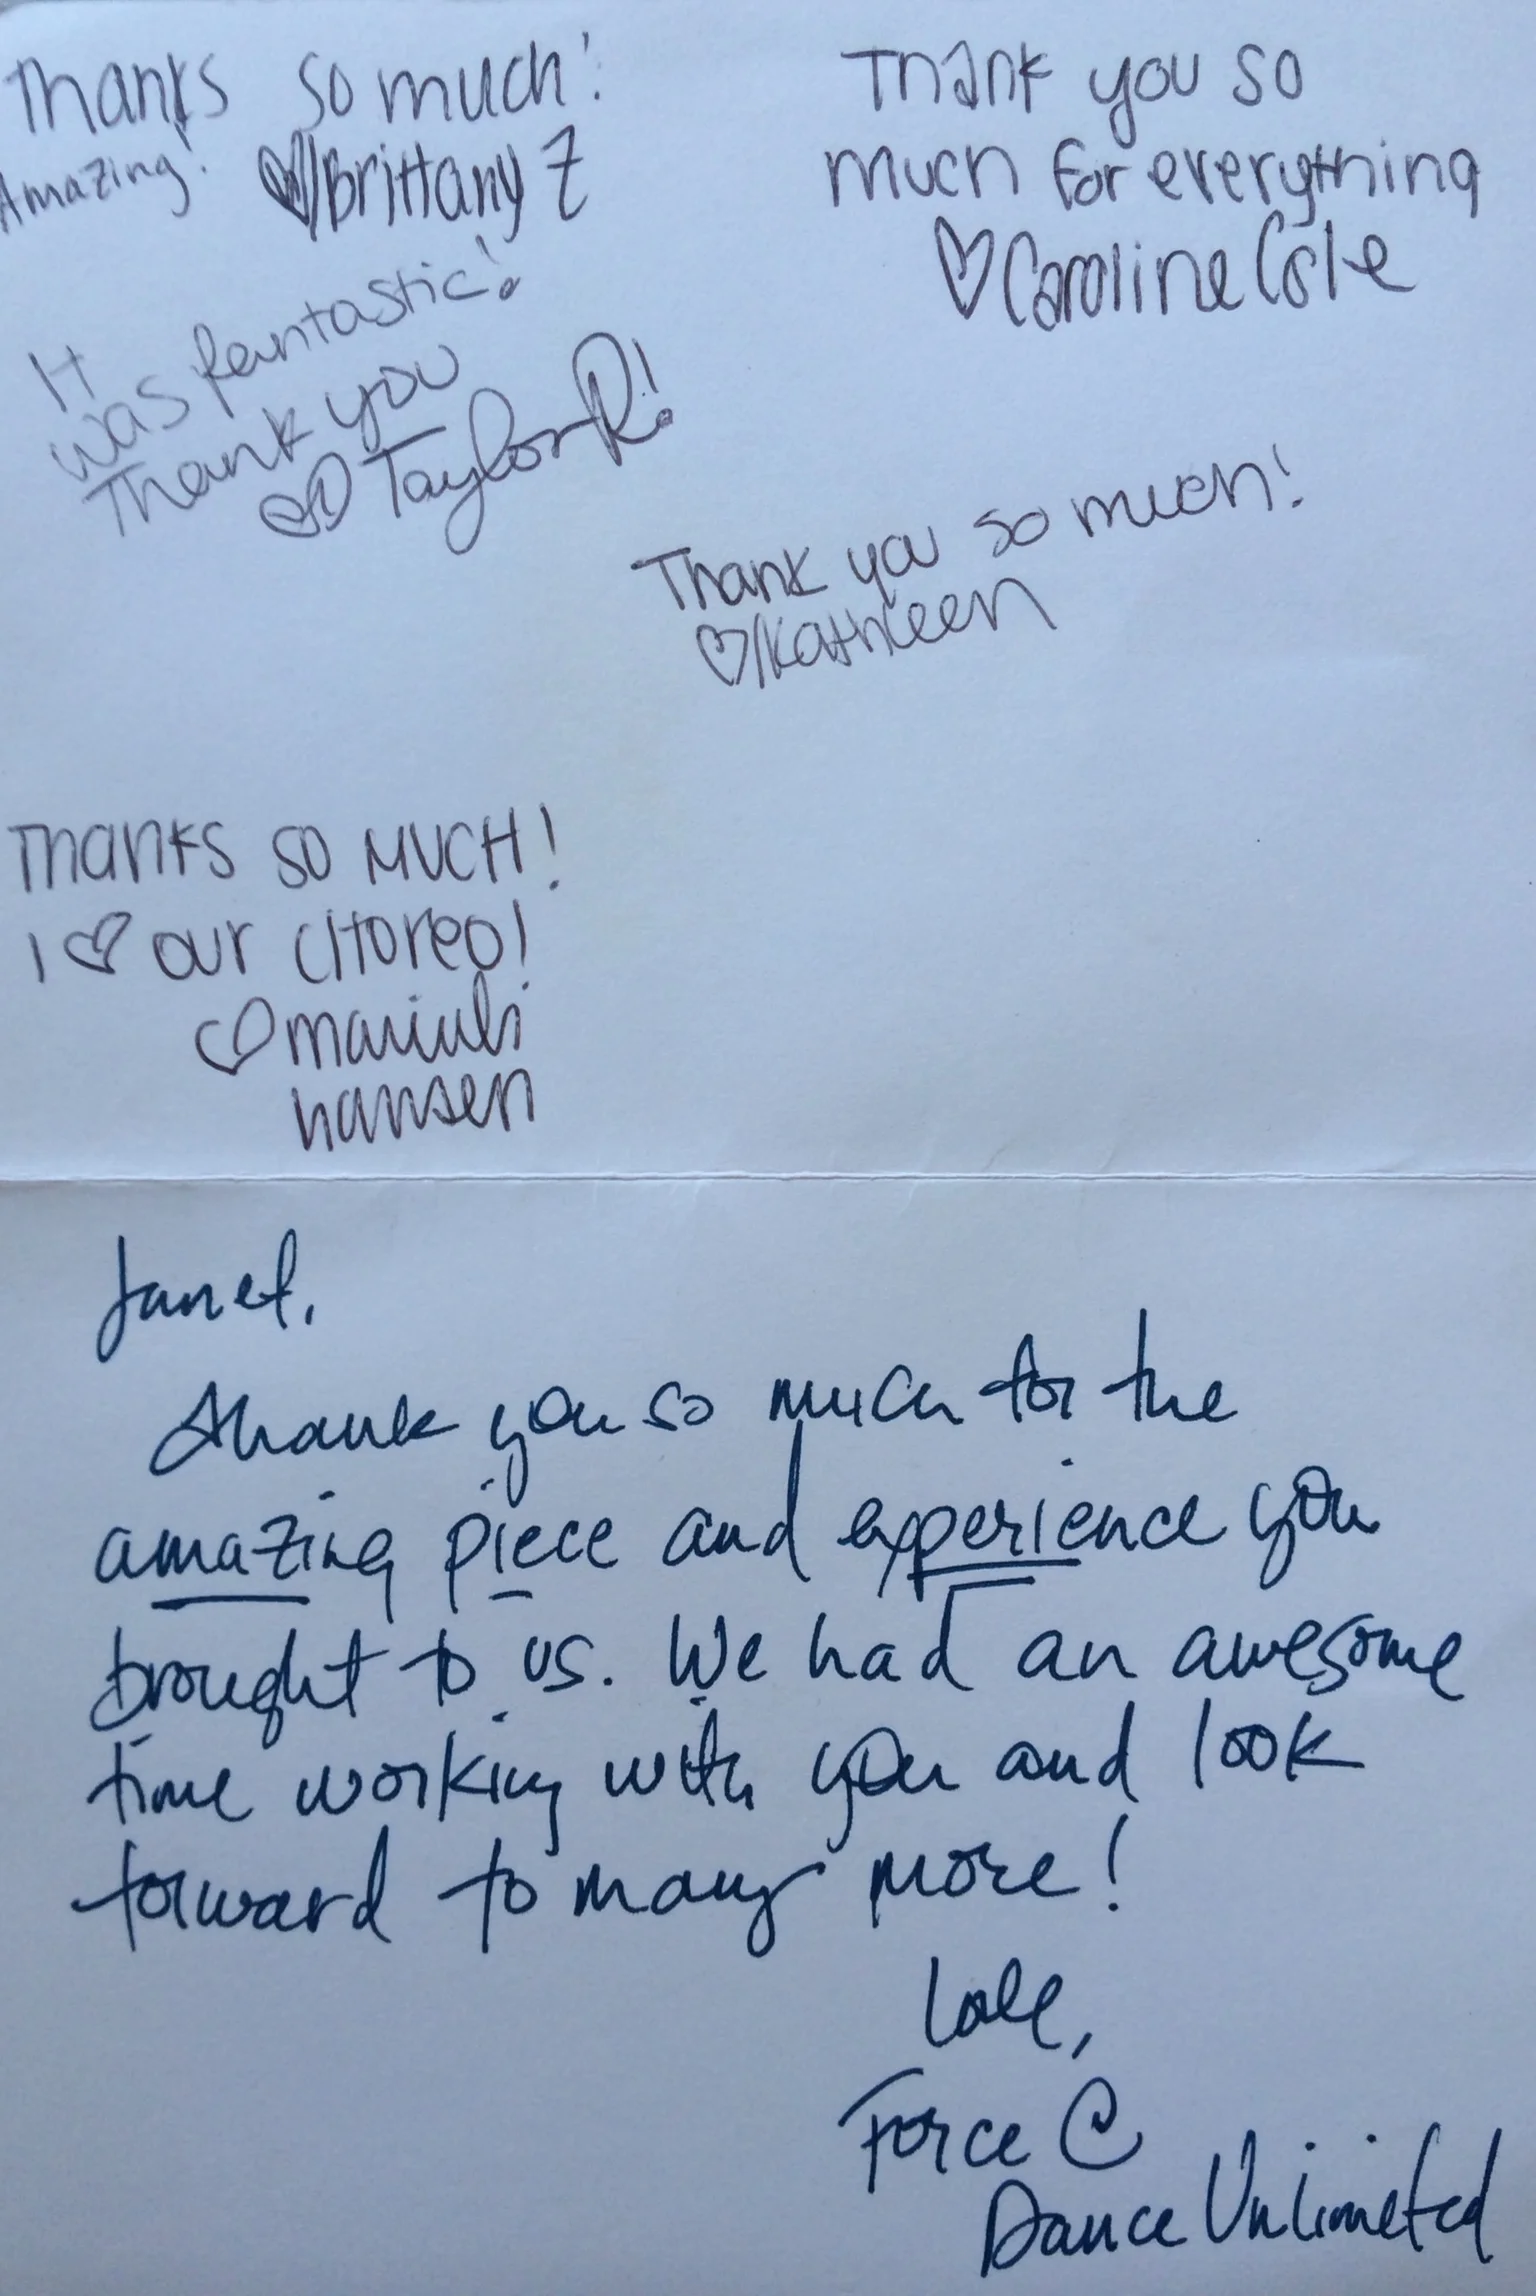 Thanks so much!
Amazing! ♡ Brittany Z
It
was fantastic!
Thank you
♡ Taylor R!
Thank you so
much for everything
♡ Caroline Cole
Thank you so much!
♡ Kathleen
Thanks SO MUCH!
I ♡ our CHoreo!
♡
hansen
Janet,
Thank you so much for the
amazing piece and experience you
brought to us. We had an awesome
time working with you and look
forward to many more!
Love,
Force @
Dance Unlimited